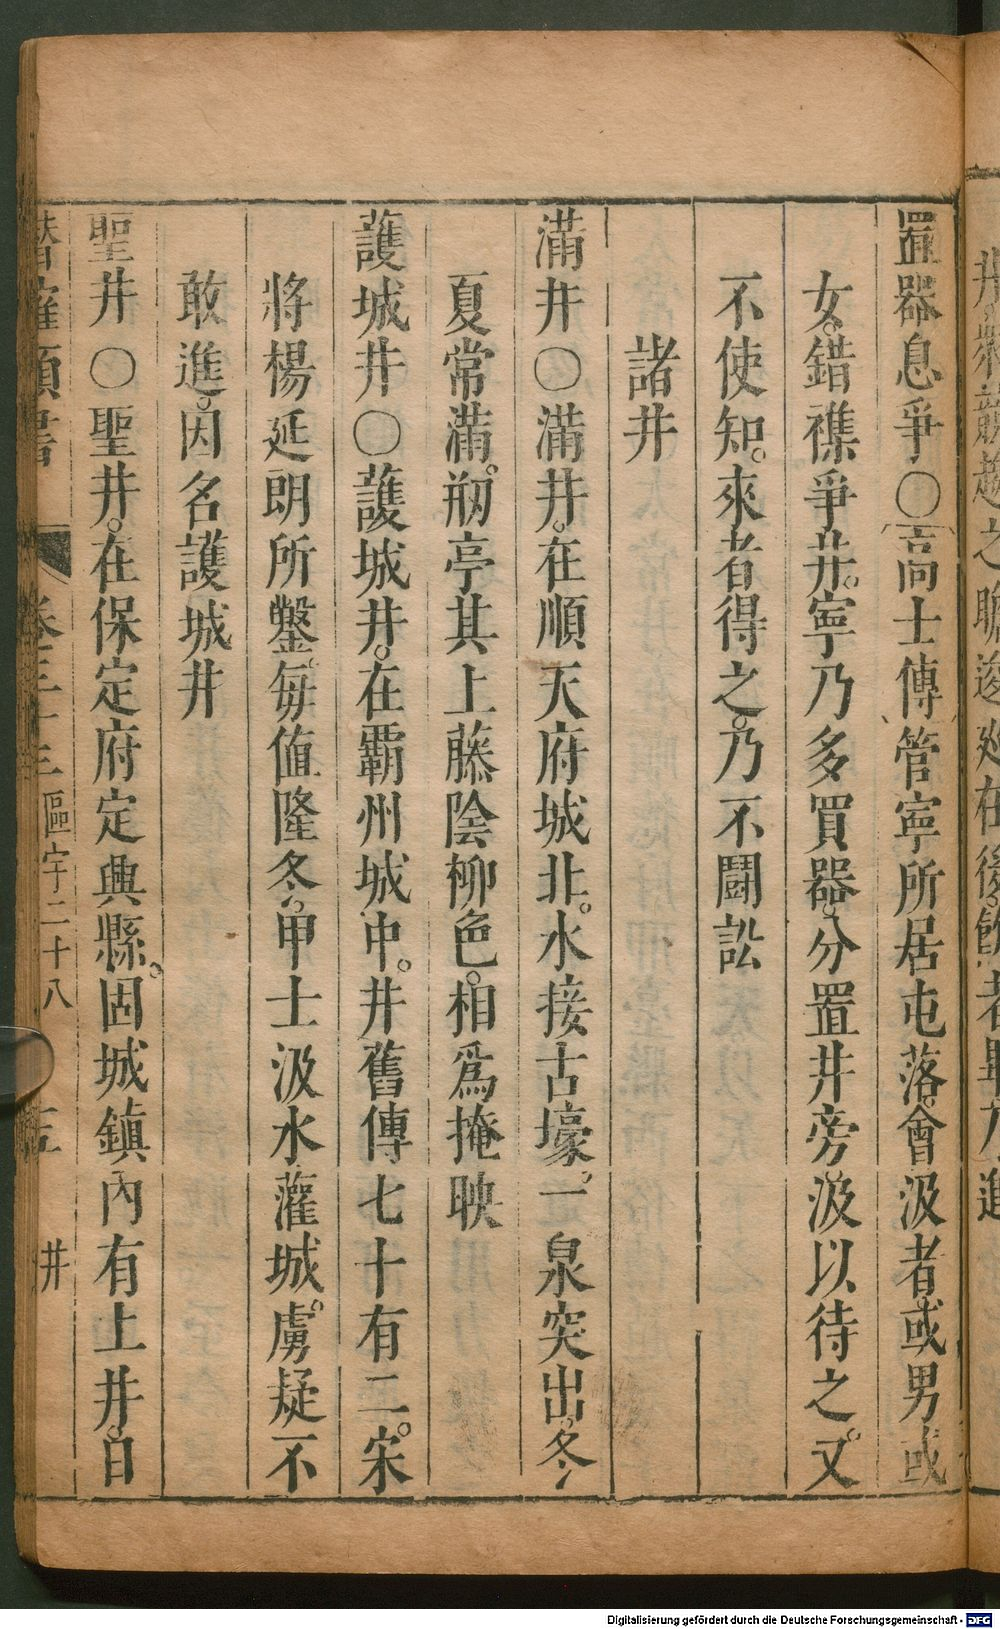 置器息爭〇高士傳管寧所居屯落。會汲者或男或
女。錯襍爭井。寧乃多買器。分置井旁。汲以待之。又
不使知。來者得之。乃不鬪訟
諸井
滿井〇滿井。在順天府城北。水接古壕。一泉突出。冬
夏常滿。剏亭其上。藤陰柳色。相爲掩映
護城井〇護城井。在霸州城中。井舊傳七十有二。宋
將楊延朗所鑿。每值隆冬。甲士汲水灌城。虜疑不
敢進。因名護城井
聖井〇聖井。在保定府定興縣。固城鎮內有上井。白
潛確類書 卷三十三 區宇二十八 井
Digitalisierung gefördert durch die Deutsche Forschungsgemeinschaft - DFG